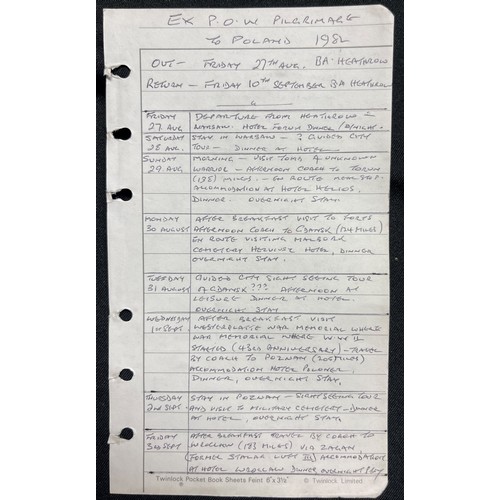 EX P.O.W PILGRIMAGE
TO POLAND 1982
OUT - FRIDAY 27TH AUG. BA-HEATHROW
RETURN - FRIDAY 10TH SEPTEMBER BA HEATHROW
FRIDAY DEPARTURE FROM HEATHROW -
27 AUG WARSAW. HOTEL FORUM DINNER O/NIGHT.
SATURDAY STAY IN WARSAW - ? GUIDED CITY
28 AUG. TOUR - DINNER AT HOTEL
SUNDAY MORNING - VISIT TOMB UNKNOWN
29 AUG. WARRIOR - AFTERNOON COACH TO TORUN
(185) MILES. - EN ROUTE
ACCOMMODATION AT HOTEL HELIOS,
DINNER - OVERNIGHT STAY.
MONDAY AFTER BREAKFAST VISIT TO FORTS
30 AUGUST AFTERNOON COACH TO GDANSK (114 MILES)
EN ROUTE VISITING MALBORK
CEMETERY HEVELIUSZ HOTEL, DINNER
OVERNIGHT STAY.
TUESDAY GUIDED CITY SIGHT SEEING TOUR
31 AUGUST GDANSK ??? AFTERNOON AT
LEISURE DINNER AT HOTEL.
OVERNIGHT STAY
WEDNESDAY AFTER BREAKFAST VISIT
1st SEPT WESTERPLATTE WAR MEMORIAL WHERE
WAR MEMORIAL WHERE WW II
STARTED (43rd ANNIVERSARY) - TRAVEL
BY COACH TO POZNAN (205 MILES)
ACCOMMODATION HOTEL POLONEZ.
DINNER, OVERNIGHT STAY,
STAY IN POZNAN - SIGHTSEEING TOUR
2nd SEPT - AND VISIT TO MILITARY CEMETERY - DINNER
AT HOTEL, OVERNIGHT STAY.
FRIDAY AFTER BREAKFAST TRAVEL BY COACH TO
3rd SEPT WROCLAW (183 MILES) VIA ZAGAN
(FORMER STALAG LUFT III) ACCOMMODATION
AT HOTEL WROCLAW DINNER OVERNIGHT STAY
Twinlock Pocket Book Sheets Feint 6" x 3½" © Twinlock Limited.